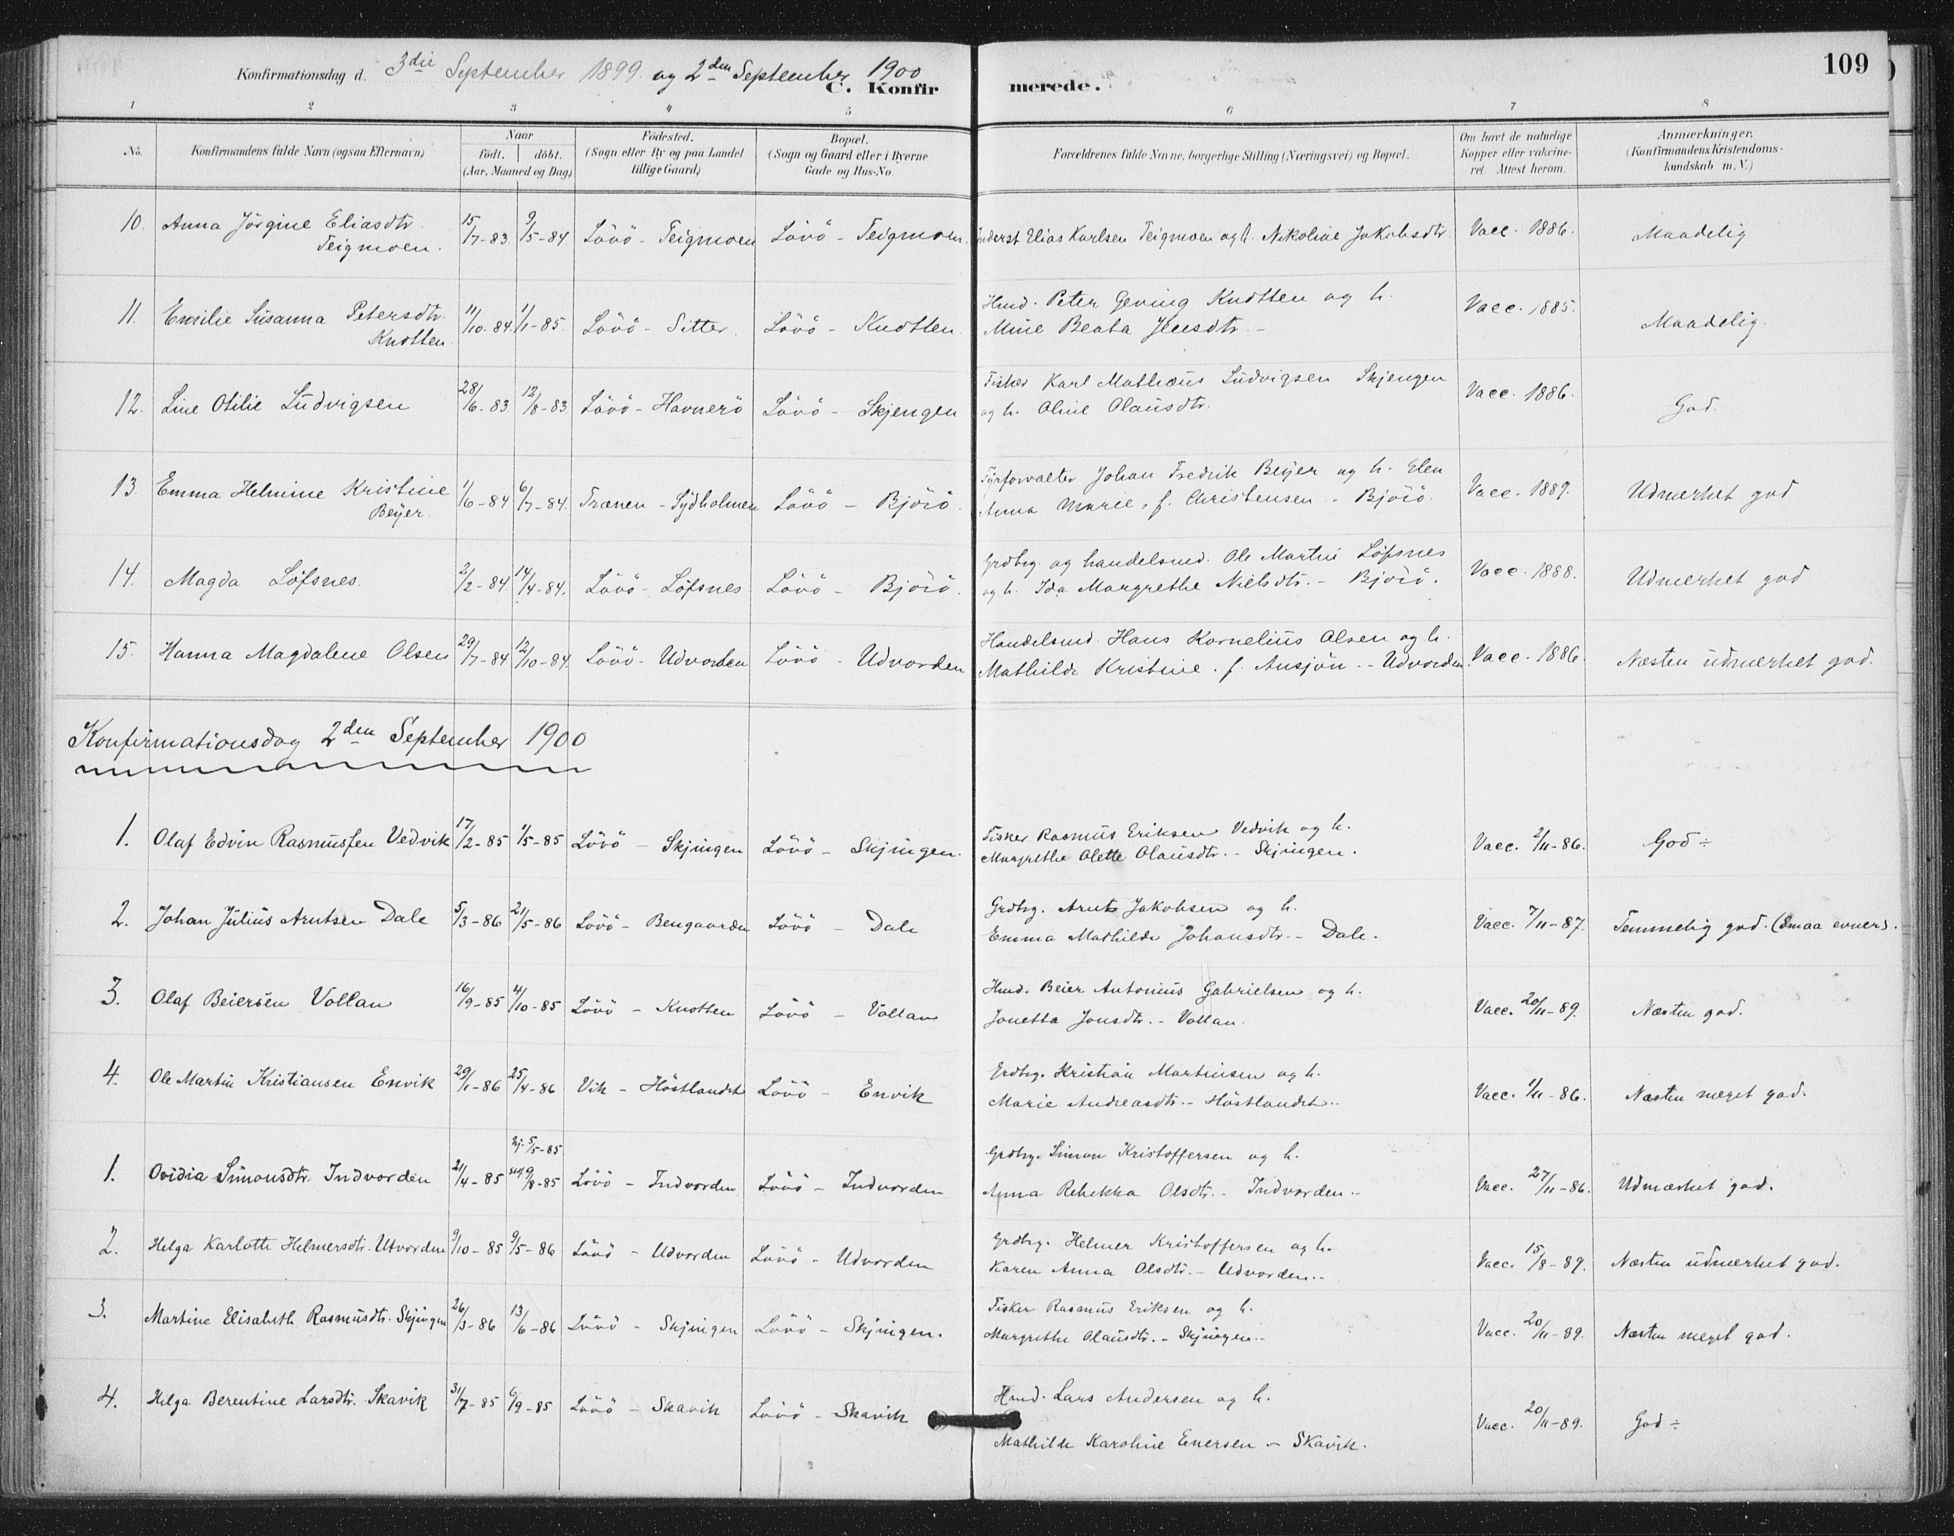 109
Konfirmationsdag d. 3die September 1899 og 2den September 1900
C. Konfir merede.
1 2 3 4 5 6 7 8
No. Konfirmandens fulde Navn (ogsaa Efternavn) Naar födt. döbt. (Aar, Maaned og Dag) Födested. (Sogn eller By og paa Landet tillige Gaard) Bopæl. (Sogn og Gaard eller i Byerne Gade og Hus-No. Forældrenes fulde Navne, borgerlige Stilling (Næringsvei) og Bopæl. Om havt de naturlige Kopper eller vakcineret. Attest herom. Anmærkninger. (Konfirmandens Kristendomskundskab m. V.)
10. Anna Jörgine Eliasdtr. Teigmoen. 15/7-83 9/5-84 Lövö - Teigmoen Lövö - Teigmoen. Inderst Elias Karlsen Teigmoen og h. Nikoline Jakobsdtr. Vacc. 1886. Maadelig
11. Emilie Susanna Petersdtr. Knotten 11/10-84 1/1-85. Lövö - Sitter. Lövö - Knotten. Hmd. Peter Geving Knotten og h.
Mine Beata Jensdtr. - Vacc. 1885. Maadelig.
12. Line Otilie Ludvigsen 28/6-83 12/8-83 Lövö - Havnerö Lövö - Skjengen Fisker Karl Mathæus Ludvigsen Skjengen
og h. Oline Olausdtr. Vacc. 1886. God.
13. Emma Helmine Kristine Beyer. 1/6-84 6/7-84. Trænen - Sydholmen Lövö - Björö. Fyrforvalter Johan Fredrik Beyer og h. Elen
Anna Marie, f. Christensen - Björö. Vacc. 1889. Udmerket god
14. Magda Løfsnes. 2/2-84 14/4-84. Lövö - Løfsnes Lövö - Björö. Grdbrg. og handelsmd. Ole Martin Løfsnes
og h. Ida Margrethe Nielsdtr. - Björö. Vacc. 1888. Udmerket god
15. Hanna Magdalene Olsen 29/7-84 12/10-84. Lövö - Udvorden Lövö - Udvorden Handelsmd. Hans Kornelius Olsen og h.
Mathilde Kristine. f. Ansjön. - Udvorden. Vacc. 1886. Næsten udmerket god.
Konfirmationsdag 2den September 1900
1. Olaf Edvin Rasmussen Vedvik 17/2-85 1/5-85 Lövö - Skjingen Lövö - Skjingen. Fisker Rasmus Eriksen Vedvik og h.
Margrethe Olette Olausdtr. - Skjingen. Vacc. 2/11-86. God ÷
2. Johan Julius Arntsen Dale 5/3-86 21/5-86 Lövö - Bengaarden Lövö - Dale Grdbrg. Arnt Jakobsen og h.
Emma Mathilde Johansdtr. - Dale. Vacc. 7/11-87. Temmelig god. (Smaa evner).
3. Olaf Beiersen Vollan 16/9-85 4/10-85 Lövö - Knotten Lövö - Vollan Hmd. Beier Antonius Gabrielsen og h.
Jonetta Jonsdtr. - Vollan. Vacc. 20/11-89. Næsten god.
4. Ole Martin Kristiansen Envik 29/1-86 25/4-86 Vik - Höstlandet Lövö - Envik Grdbrg. Kristian Martinsen og h.
Marie Andreasdtr. - Höstlandet. - Vacc. 1/11-86. Næsten meget god.
1. Ovidia Simonsdtr. Indvorden 21/4-85 hj. 5/5-85 9/8-85 Lövö - Indvorden Lövö - Indvorden Grdbrg. Simon Kristoffersen og h.
Anna Rebekka Olsdtr. - Indvorden. - Vacc. 27/11-86. Udmærket god.
2. Helga Karlotte Helmersdtr. Utvorden 9/10-85 9/5-86 Lövö - Udvorden Lövö - Udvorden Grdbrg. Helmer Kristoffersen og h.
Karen Anna Olsdtr. - Udvorden. - Vacc. 15/8-89. Næsten udmerket god.
3. Martine Elisabeth Rasmusdtr. Skjingen 26/3-86 13/6-86 Lövö - Skjingen Lövö - Skjingen. Fisker Rasmus Eriksen og h.
Margrethe Olausdtr. - Skjingen. - Vacc. 20/11-89. Næsten meget god.
4. Helga Berentine Larsdtr. Skavik 31/7-85 6/9-85 Lövö - Skavik Lövö - Skavik Hmd. Lars Andersen og h.
Mathilde Karoline Enersen - Skavik. Vacc. 20/11-89. God ÷